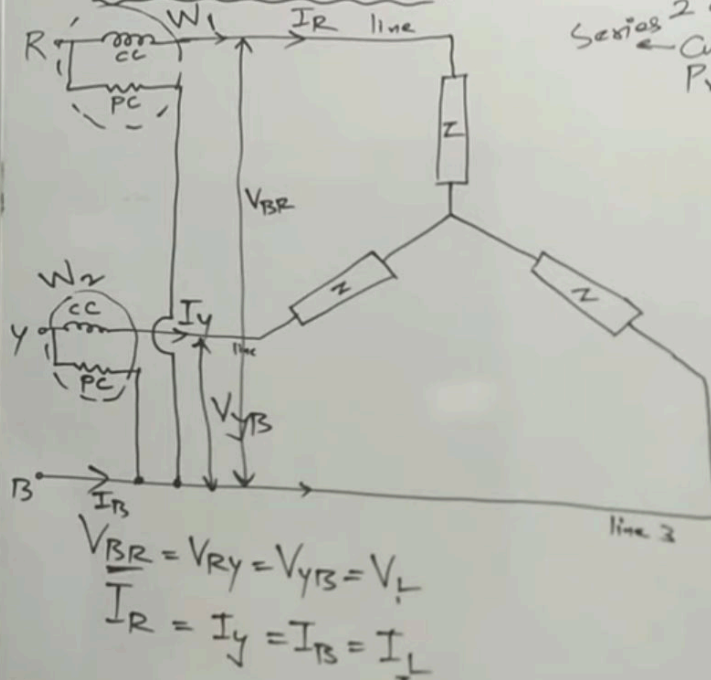 W1
R
CC
PC
IR
line
Series
2
Z
VBR
Z
Z
W2
CC
Y
PC
Iy
line
VyB
B
IB
line 3
VBR = VRy = VyB = VL
IR = Iy = IB = IL